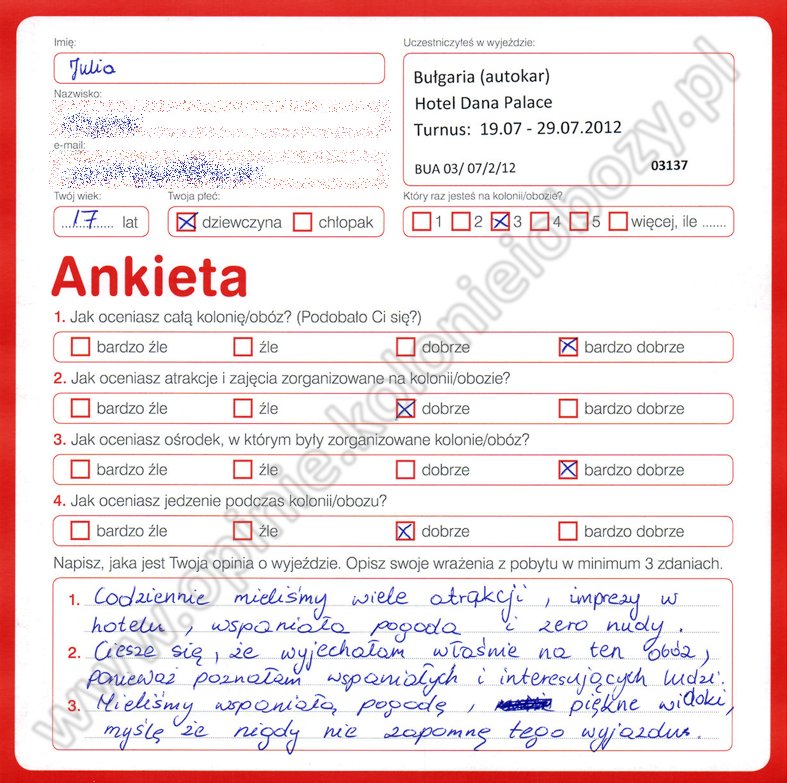 Imię:
Julia
Nazwisko:
e-mail:
Twój wiek:
17 lat
Twoja płeć:
dziewczyna chłopak
Uczestniczyłeś w wyjeździe:
Bułgaria (autokar)
Hotel Dana Palace
Turnus: 19.07 - 29.07.2012
BUA 03/ 07/2/12 03137
Który raz jesteś na kolonii/obozie?
1 2 3 4 5 więcej, ile .......
Ankieta
1. Jak oceniasz całą kolonię/obóz? (Podobało Ci się?)
bardzo źle źle dobrze bardzo dobrze
2. Jak oceniasz atrakcje i zajęcia zorganizowane na kolonii/obozie?
bardzo źle źle dobrze bardzo dobrze
3. Jak oceniasz ośrodek, w którym były zorganizowane kolonie/obóz?
bardzo źle źle dobrze bardzo dobrze
4. Jak oceniasz jedzenie podczas kolonii/obozu?
bardzo źle źle dobrze bardzo dobrze
Napisz, jaka jest Twoja opinia o wyjeździe. Opisz swoje wrażenia z pobytu w minimum 3 zdaniach.
1. Codziennie mieliśmy wiele atrakcji, imprezy w
hotelu, wspaniała pogoda i zero nudy.
2. Ciesze się, że wyjechałam właśnie na ten obóz,
ponieważ poznałam wspaniałych i interesujących ludzi.
3. Mieliśmy wspaniałą pogodę, piękne widoki,
myślę że nigdy nie zapomnę tego wyjazdu.
www.opinie.kolonieiobozy.pl